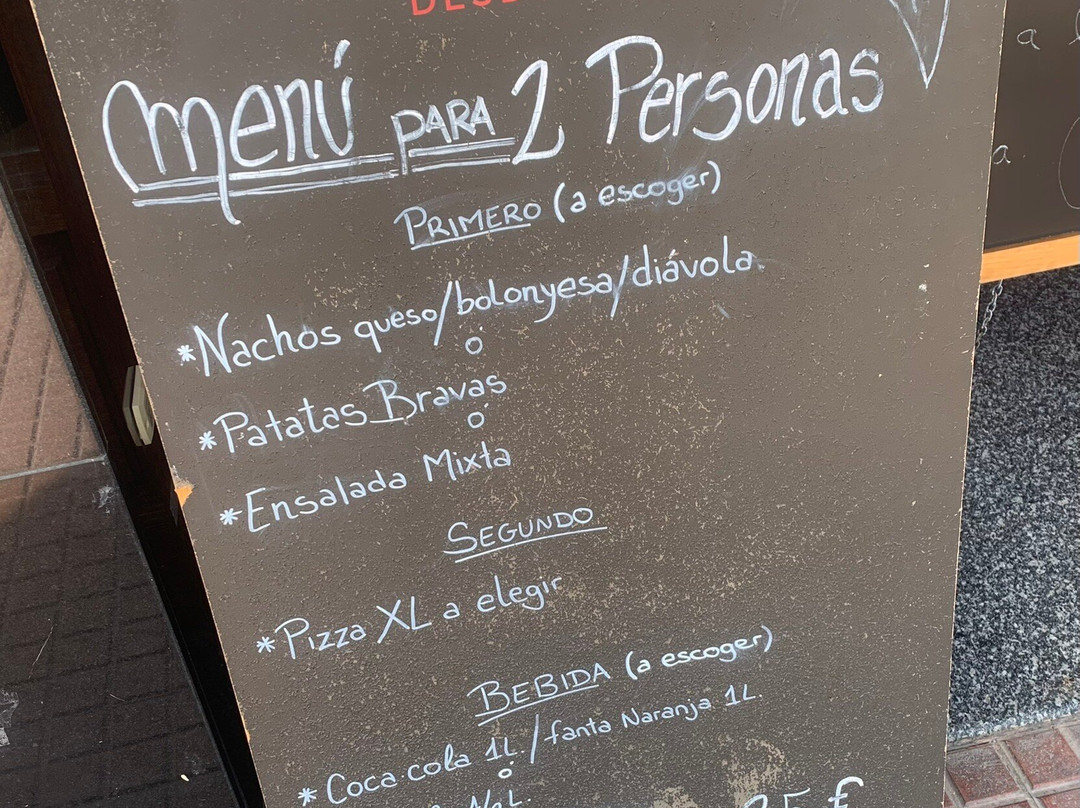 Menú PARA 2 Personas
PRIMERO (a escoger)
*Nachos queso/bolonyesa/diávola.
ó
*Patatas Bravas
ó
*Ensalada Mixta
SEGUNDO
*Pizza XL a elegir
BEBIDA (a escoger)
*Coca-cola 1L./fanta Naranja 1L.
ó
€
a
a.